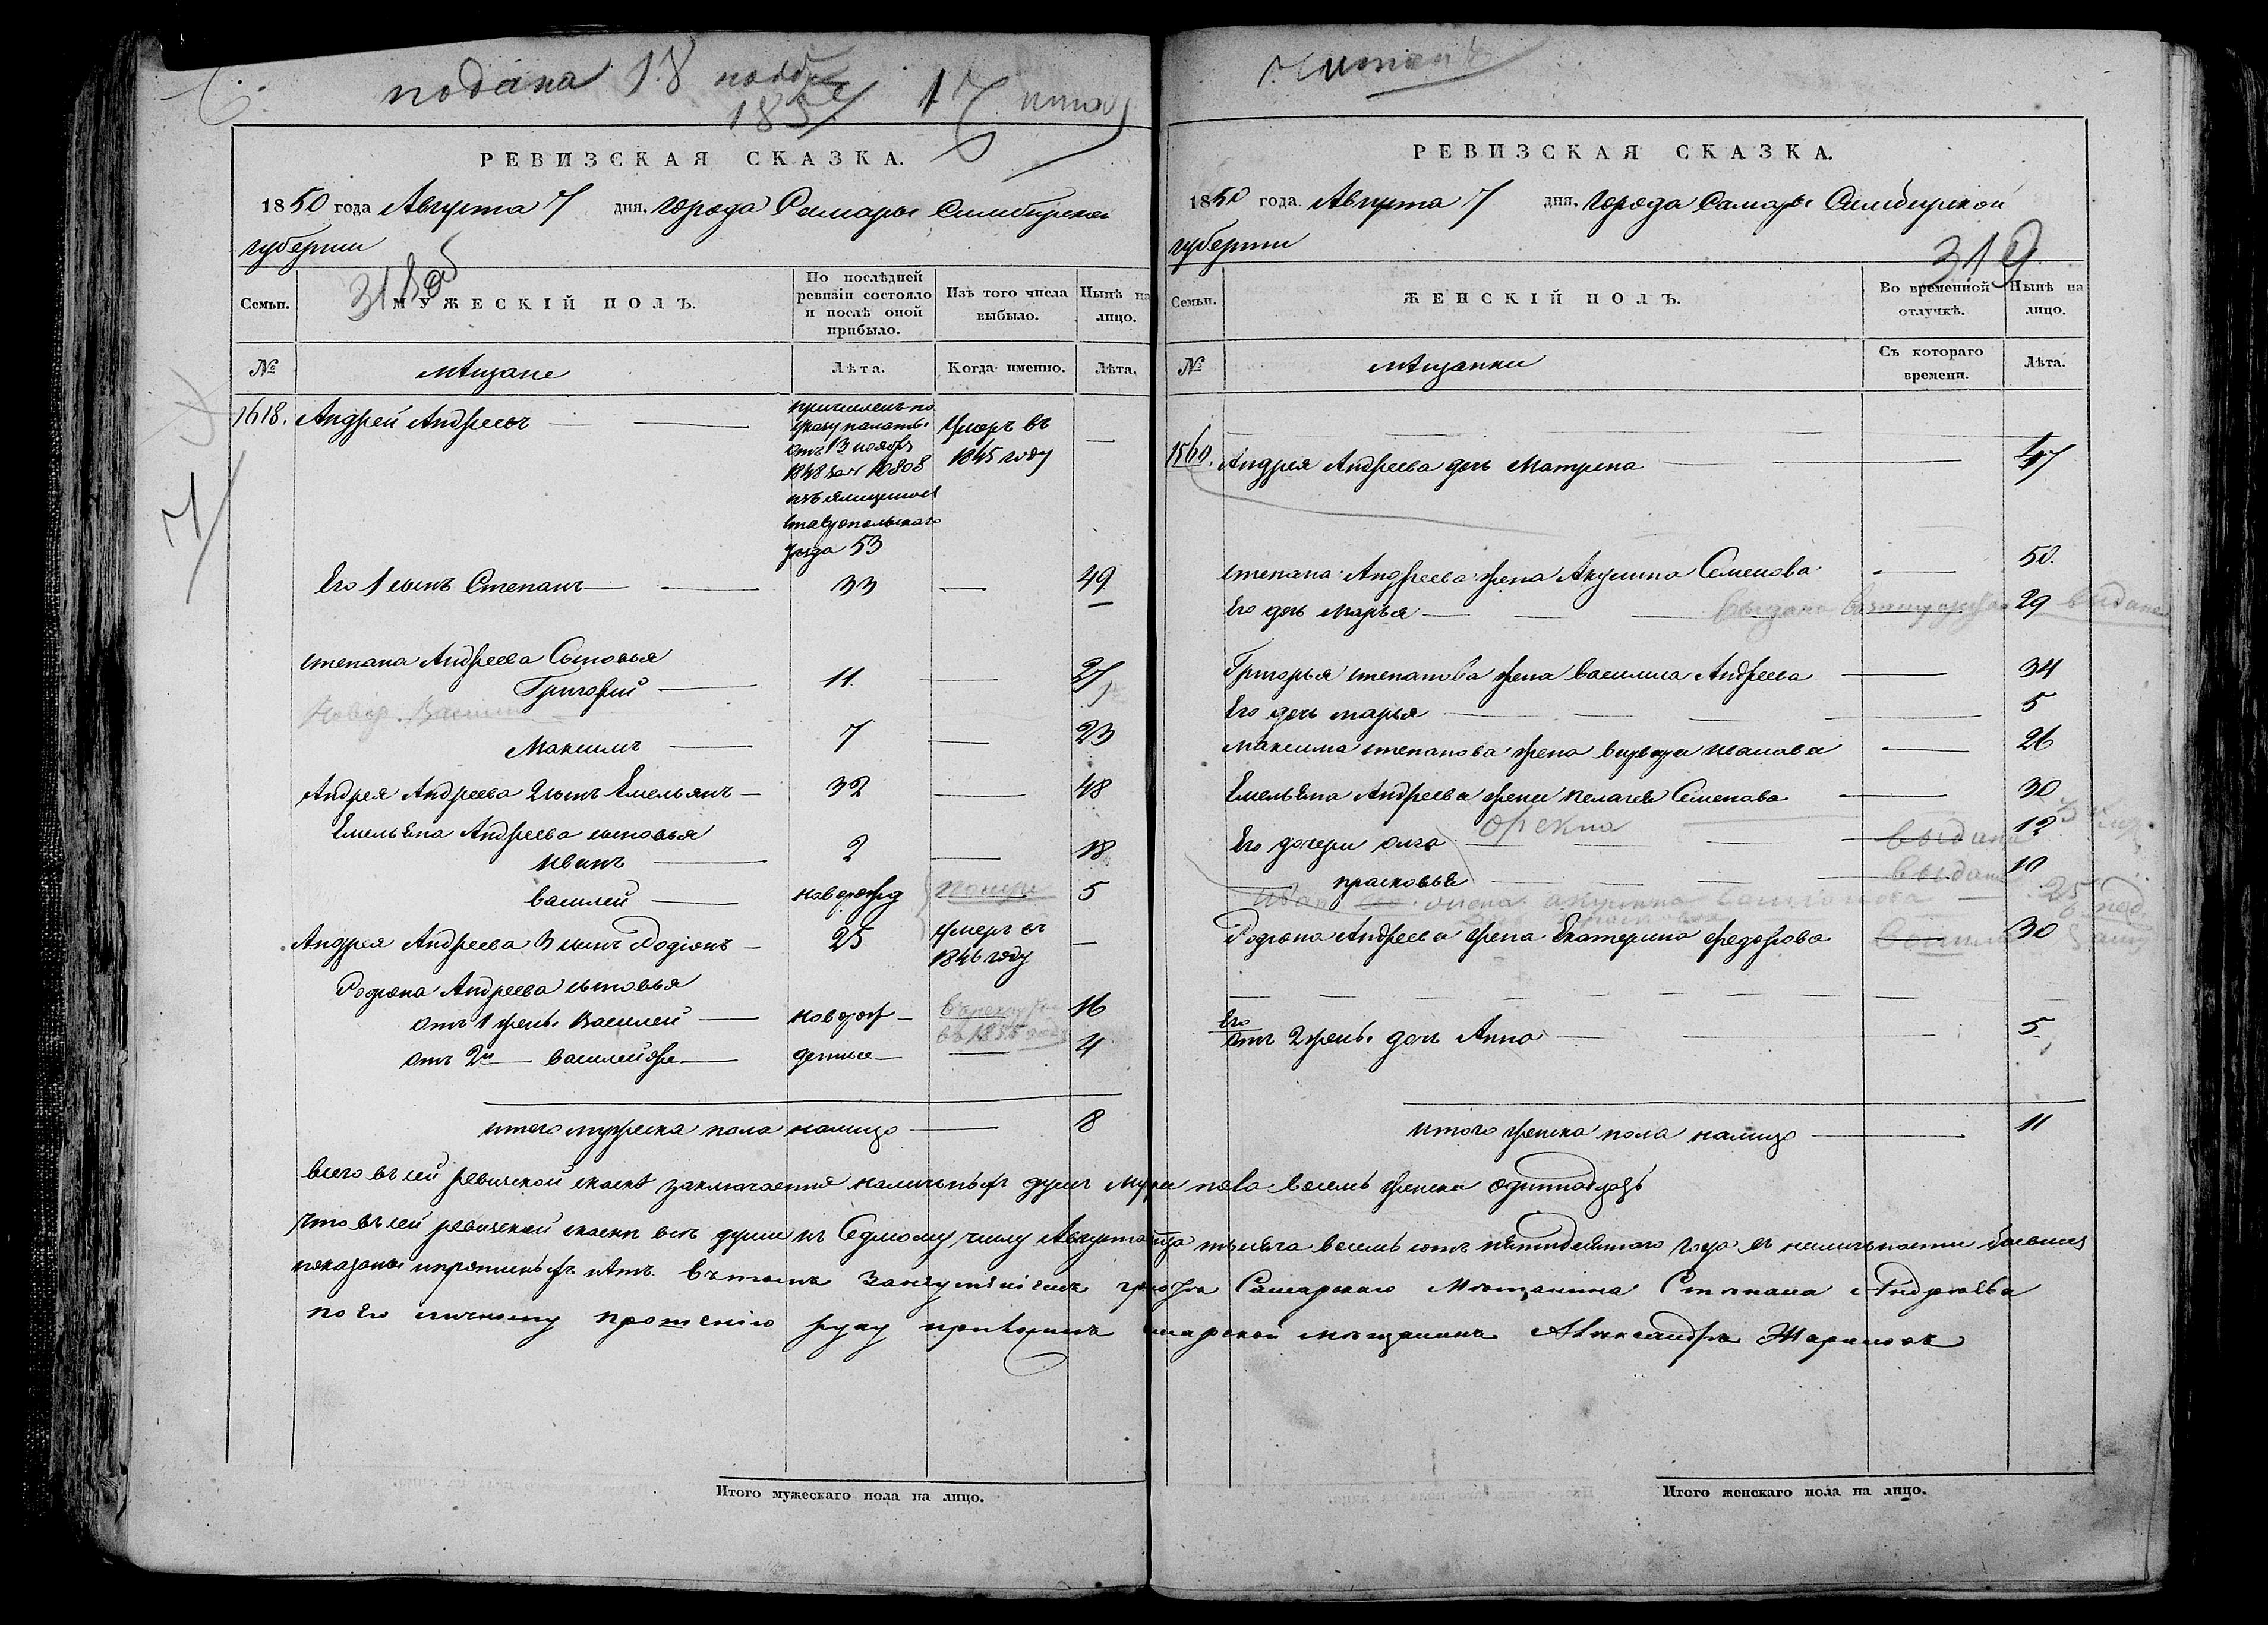 подана 18 нояб
1857
17
РЕВИЗСКАЯ СКАЗКА.
1850 года Августа 7 дня, города Самары Симбирской
губернии
318 об
Семьи.
МУЖЕСКІЙ ПОЛЪ.
По послѣдней ревизіи состояло и послѣ оной прибыло.
Изъ того числа выбыло.
Нынѣ на лицо.
№
мѣщане
Лѣта.
Когда именно.
Лѣта.
1618. Андрей Андреевъ
причисленъ по
указу палаты
отъ 13 ноября
1848 за № 10808
изъ ямщиковъ
ставропольскаго
уѣзда 53
Умеръ въ
1845 году
Его 1 сынъ Степанъ 33 49
степана Андреева Сыновья
Григорій 11 27
Новор. Васил
Максимъ 7 23
Андрея Андреева 2 сынъ Емельянъ 32 48
Емельяна Андреева сыновья
Иванъ 2 18
Василей новорожд 5
Андрея Андреева 3 сынъ Родіонъ 25 умеръ въ
1846 году
Родіона Андреева сыновья
отъ 1 жены. Василей новорож 16
въ 1855 году
отъ 2й василей же 4
итого мужеска пола налицо 8
РЕВИЗСКАЯ СКАЗКА.
1850 года Августа 7 дня, города Самары Симбирской
губернии
319
Семьи.
ЖЕНСКІЙ ПОЛЪ.
Во временной отлучкѣ.
Нынѣ на лицо.
№
мѣщанки
Съ котораго времени.
Лѣта.
1560. Андрея Андреева дочь Матрена 47
степана Андреева жена Акулина Семенова 50
Его дочь Марья 29 выдана
Григорья степанова жена василиса Андреева 34
Его дочь марья 5
Максима степанова жена Ивановa 26
Емельяна Андреева жена пелагея Семенова 30
Его дочери олга 12
выдана
прасковья 10
выдана
Иван его жена акулина
Родіона Андреева жена Екатерина федорова 30
Его
отъ 2 жены. дочь Анна 5
итого женска пола налицо 11
всего въ сей ревизской сказкѣ заключается наличныхъ душъ муж пола восемь женска одиннадцать
что въ сей ревизской сказкѣ всѣ души къ Седмому числу Августа тысяча восемь сотъ пятидесятаго года въ наличности бывшия
показаны и прописныхъ нѣтъ. въ томъ Самарскаго Мѣщанина Степана Андреева
по его личному прошенію руку приложилъ самарской мѣщанинъ Александръ
Итого мужескаго пола на лицо.
Итого женскаго пола на лицо.